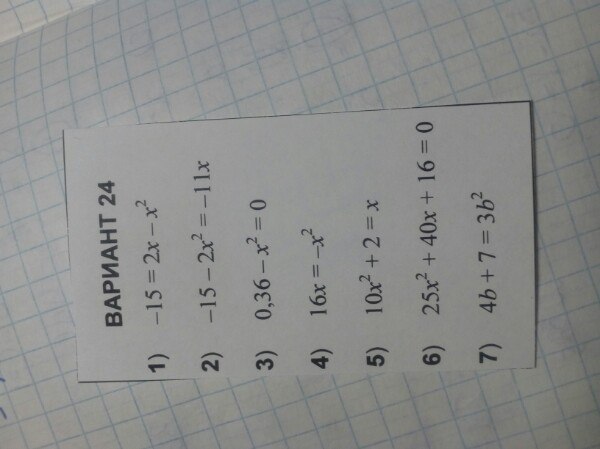 ВАРИАНТ 24
1) −15 = 2x − x²
2) −15 − 2x² = −11x
3) 0,36 − x² = 0
4) 16x = −x²
5) 10x² + 2 = x
6) 25x² + 40x + 16 = 0
7) 4b + 7 = 3b²